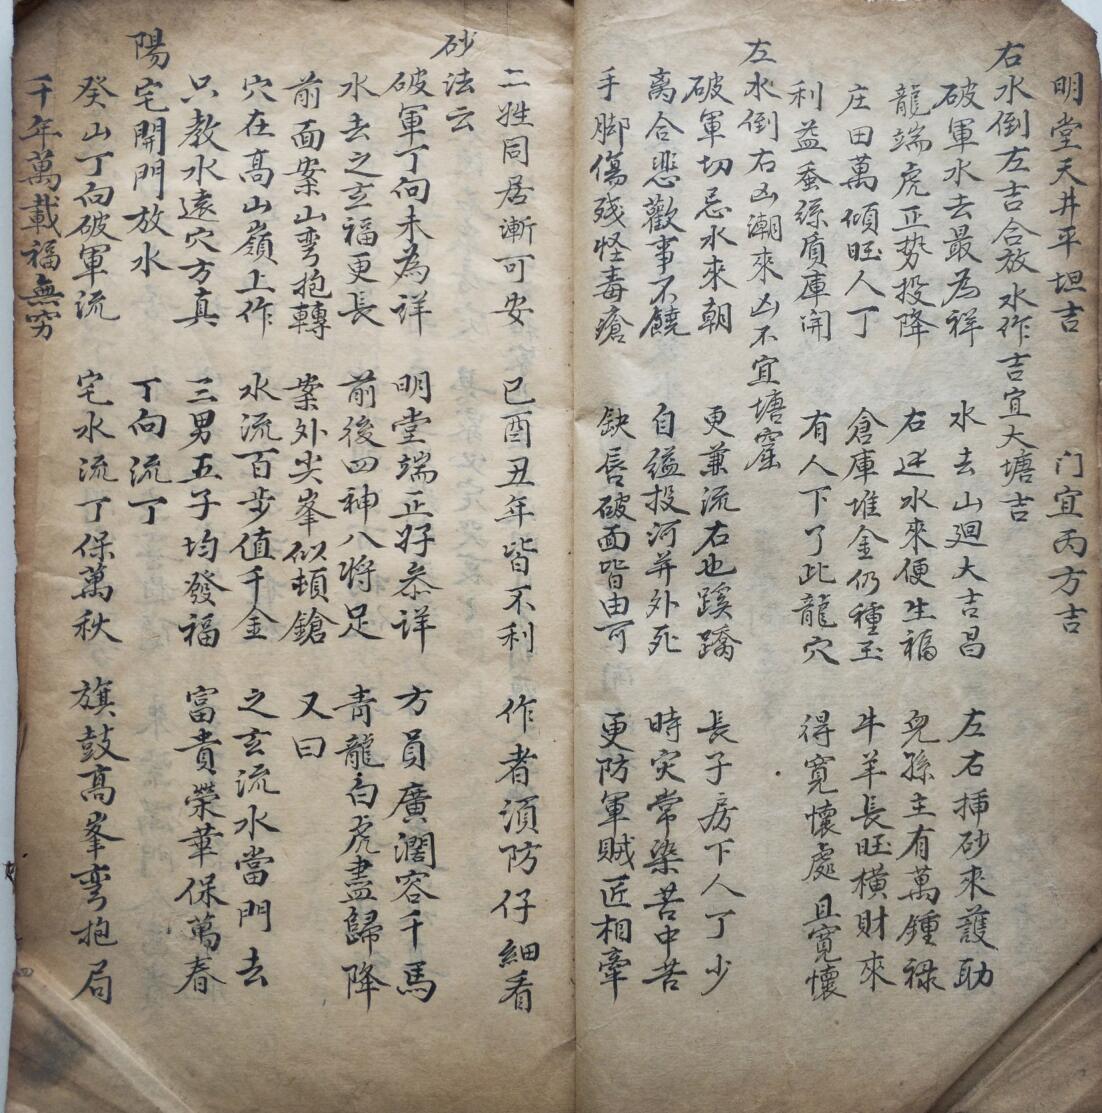 明堂天井平坦吉 门宜丙方吉
右水倒左吉合放水作吉宜大塘吉
破軍水去最為祥 水去山廻大吉昌 左右挿砂來護助
龍端虎正势投降 右迋水來便生福 兒孫主有萬鍾禄
庄田萬傾旺人丁 倉庫堆金仍種玉 牛羊長旺横財來
利益蚕絲貭庫開 有人下了此龍穴 得寬懷處且寬懷
左水倒右凶潮來凶不宜塘窑
破軍切忌水來朝 更兼流右也蹊蹺 長子房下人丁少
离合悲歡事不饒 自縊投河并外死 時灾常染苦中苦
手脚傷残怪毒瘡 缺唇破面皆由可 更防軍賊匠相牽
二姓同居漸可安 已酉丑年皆不利 作者須防仔細看
砂法云
破軍丁向未為详 明堂端正好叅详 方員廣濶容千馬
水去之玄福更長 前後四神八将足 青龍白虎盡歸降
前面案山弯抱轉 案外尖峯似頓鎗 又曰
穴在髙山嶺上作 水流百步值千金 之玄流水當門去
只教水遠穴方真 三男五子均發福 富貴榮華保萬春
陽宅開門放水 丁向流丁
癸山丁向破軍流 宅水流丁保萬秋 旗鼓髙峯弯抱局
千年萬載福無穷